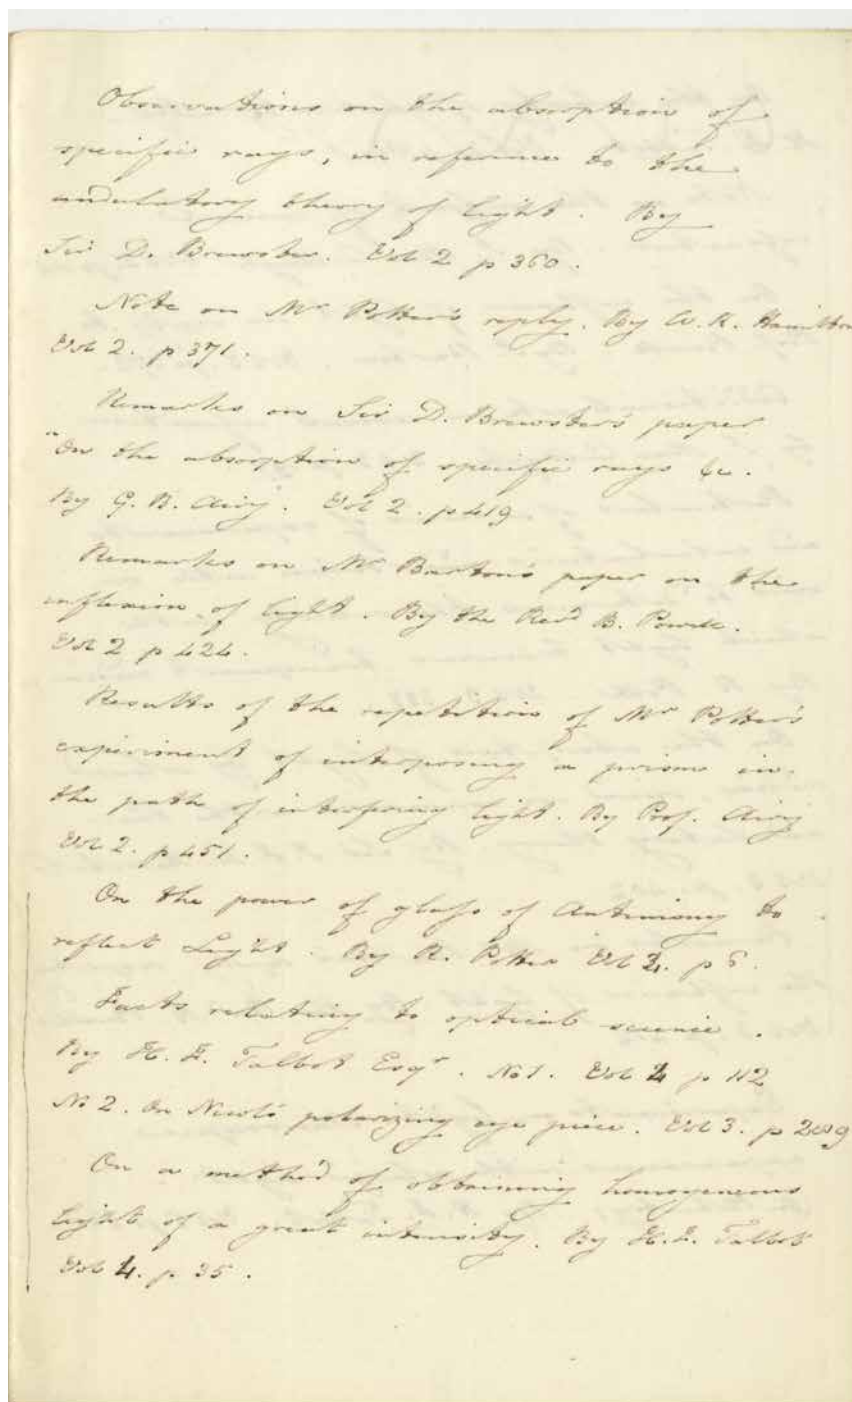 Observations on the absorption of
specific rays, in reference to the
undulatory theory of light. By
Sir D. Brewster. Vol 2 p 360.
Note on Mr Potter's reply. By W. R. Hamilton
Vol 2. p 371.
Remarks on Sir D. Brewster's paper
"On the absorption of specific rays &c.
By G. B. Airy. Vol 2. p 419
Remarks on Mr Barton's paper on the
inflexion of light. By the Revd B. Powell.
Vol 2 p 424.
Results of the repetition of Mr Potter's
experiment of interposing a prism in
the path of interfering light. By Prof. Airy
Vol 2. p 451.
On the power of glass of Antimony to
reflect Light. By R. Potter Vol 4. p 6.
Facts relating to optical science.
By H. F. Talbot Esqr. No 1. Vol 4 p 112
No 2. On Nicol's polarizing eye piece. Vol 3. p 289
On a method of obtaining homogeneous
light of a great intensity. By H. F. Talbot
Vol 4. p 35.